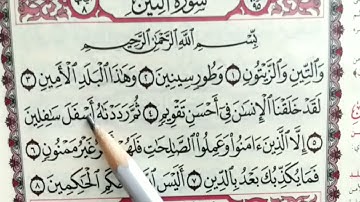 سُورَةُ التِّينِ
بِسْمِ اللَّهِ الرَّحْمَٰنِ الرَّحِيمِ
وَالتِّينِ وَالزَّيْتُونِ ١ وَطُورِ سِينِينَ ٢ وَهَٰذَا الْبَلَدِ الْأَمِينِ ٣
لَقَدْ خَلَقْنَا الْإِنسَٰنَ فِىٓ أَحْسَنِ تَقْوِيمٍ ٤ ثُمَّ رَدَدْنَٰهُ أَسْفَلَ سَٰفِلِينَ
٥ إِلَّا الَّذِينَ ءَامَنُوا۟ وَعَمِلُوا۟ الصَّٰلِحَٰتِ فَلَهُمْ غَيْرُ مَمْنُونٍ ٦
فَمَا يُكَذِّبُكَ بَعْدُ بِالدِّينِ ٧ أَلَيْسَ الْحَٰكِمِينَ ٨